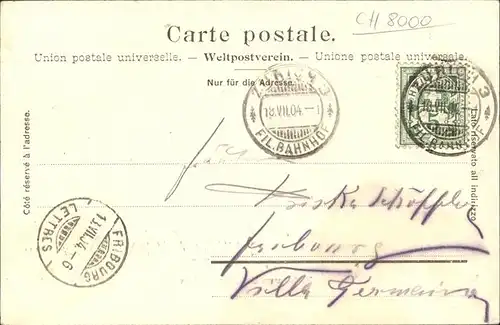 CH 8000
Carte postale.
Union postale universelle. — Weltpostverein. — Unione postale universale.
Nur für die Adresse.
ZÜRICH 3
18.VII.04.–1
FIL. BAHNHOF
ZÜRICH 3
18.VII.04.
FIL. BAHNHOF
Côté réservé à l'adresse.
Lato riservato all indirizzo.
Fribourg
Villa Germania
FRIBOURG
LETTRES